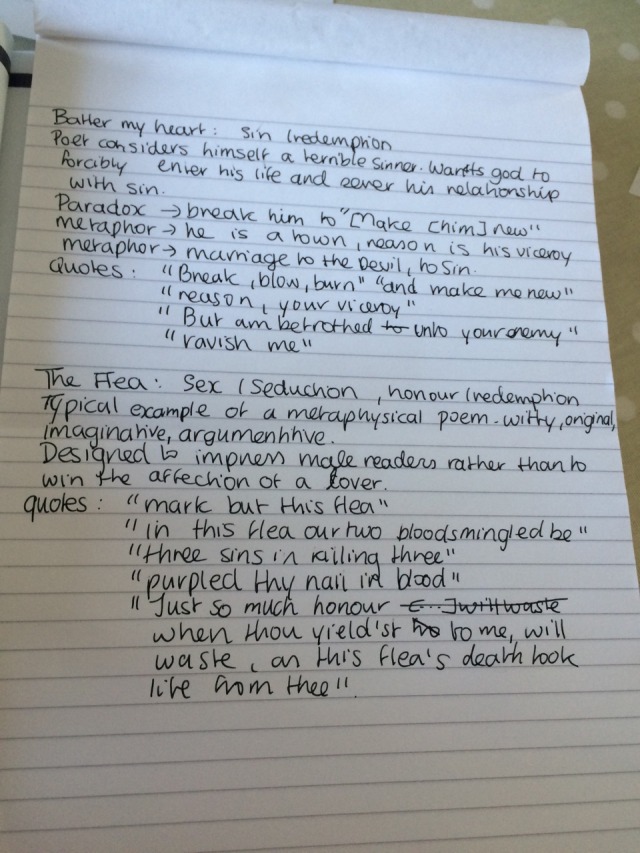 Batter my heart: Sin (redemption
Poet considers himself a terrible sinner. Wants god to
forcibly enter his life and sever his relationship
with sin.
Paradox → break him to "[Make [him] new"
metaphor → he is a town, reason is his viceroy
metaphor → marriage to the Devil, to Sin.
Quotes: "Break, blow, burn" "and make me new"
"reason, your viceroy"
"But am betrothed to unto your enemy"
"ravish me"
The Flea: Sex (Seduction, honour (redemption
Typical example of a metaphysical poem. witty, original,
imaginative, argumentitive.
Designed to impress male readers rather than to
win the affection of a lover.
quotes: "mark but this flea"
"in this flea our two bloods mingled be"
"three sins in killing three"
"purpled thy nail in blood"
"Just so much honour [...] will waste
when thou yield'st to me, will
waste, as this flea's death took
life from thee".